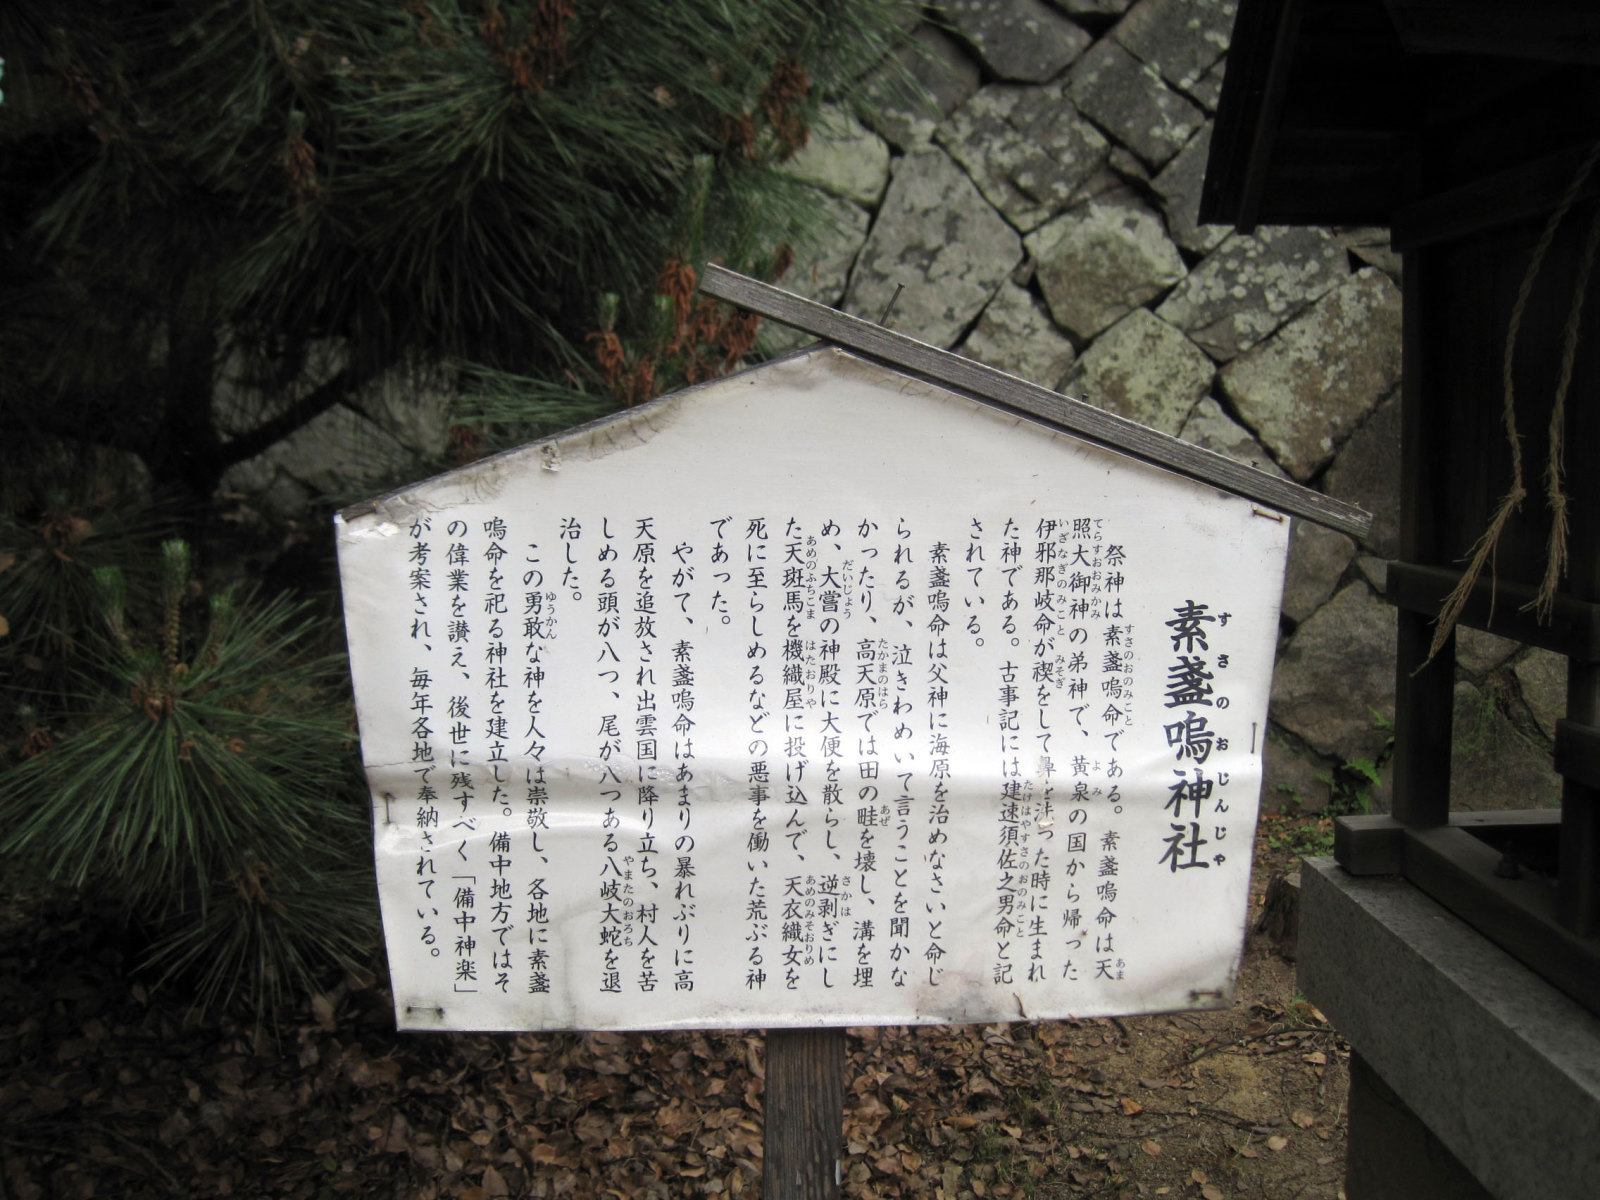 素盞嗚神社
すさのおじんじゃ
祭神は素盞嗚命である。素盞嗚命は天
照大御神の弟神で、黄泉の国から帰った
伊邪那岐命が禊をして鼻を洗った時に生まれ
た神である。古事記には建速須佐之男命と記
されている。
素盞嗚命は父神に海原を治めなさいと命じ
られるが、泣きわめいて言うことを聞かな
かったり、高天原では田の畦を壊し、溝を埋
め、大嘗の神殿に大便を散らし、逆剥ぎにし
た天斑馬を機織屋に投げ込んで、天衣織女を
死に至らしめるなどの悪事を働いた荒ぶる神
であった。
やがて、素盞嗚命はあまりの暴れぶりに高
天原を追放され出雲国に降り立ち、村人を苦
しめる頭が八つ、尾が八つある八岐大蛇を退
治した。
この勇敢な神を人々は崇敬し、各地に素盞
嗚命を祀る神社を建立した。備中地方ではそ
の偉業を讃え、後世に残すべく「備中神楽」
が考案され、毎年各地で奉納されている。